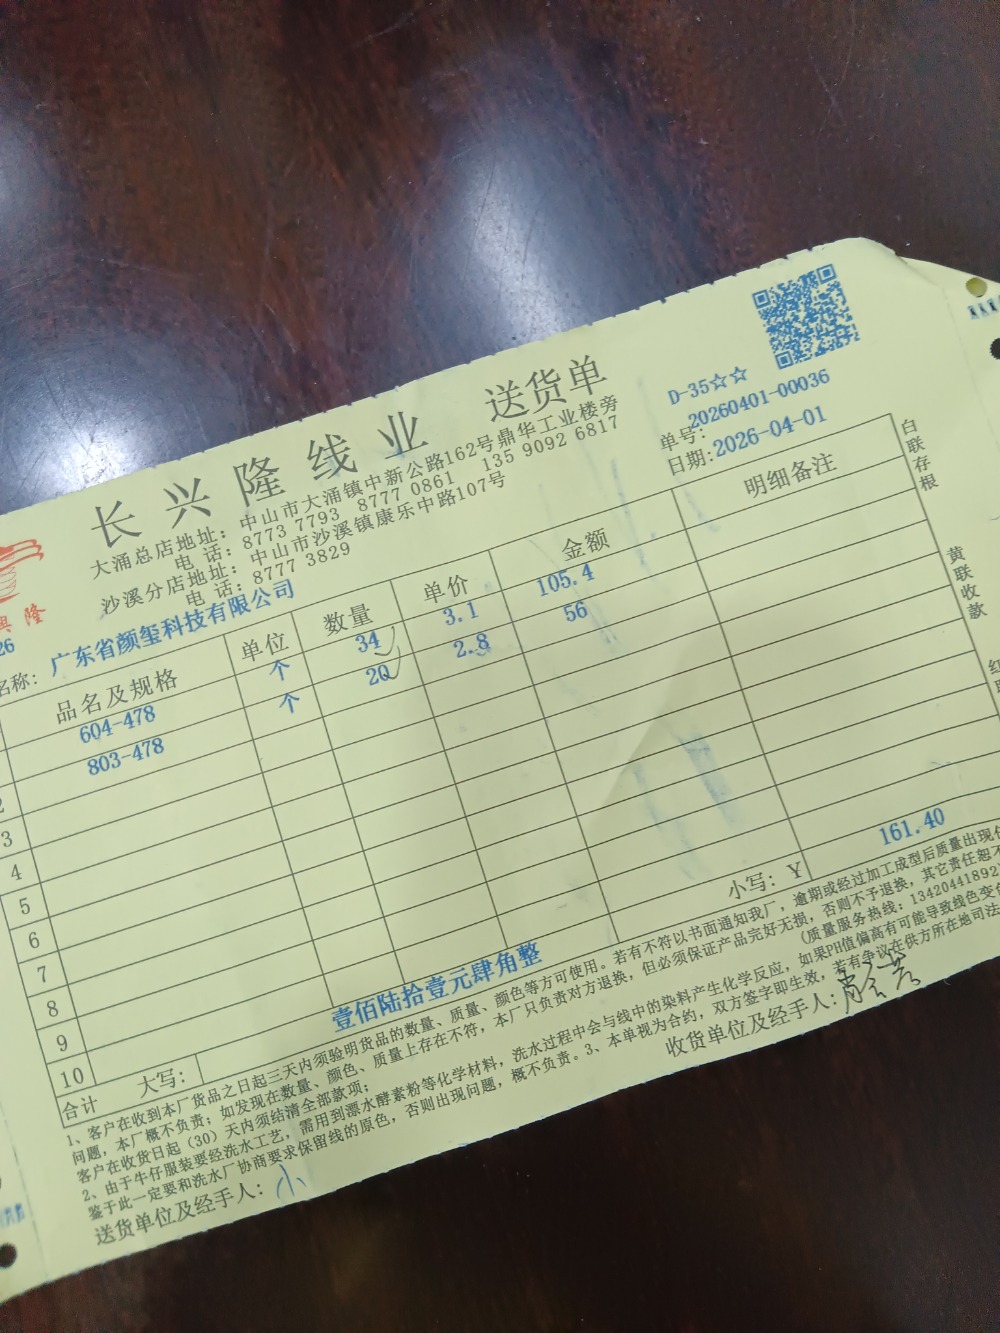 D-35☆☆
长兴隆线业 送货单
单号: 20260401-00036
日期: 2026-04-01
大涌总店地址: 中山市大涌镇中新公路162号鼎华工业楼旁
电 话: 8773 7793 8777 0861 135 9092 6817
沙溪分店地址: 中山市沙溪镇康乐中路107号
电 话: 8777 3829
隆
26
名称: 广东省颜玺科技有限公司
品名及规格 单位 数量 单价 金额 明细备注
604-478 个 34 3.1 105.4
2 803-478 个 20 2.8 56
3
4
5
6
7
8
9
10
合计 大写: 壹佰陆拾壹元肆角整 小写: Y 161.40
1、客户在收到本厂货品之日起三天内须验明货品的数量、质量、颜色等方可使用。若有不符以书面通知我厂, 逾期或经过加工成型后质量出现
问题, 本厂概不负责; 如发现在数量、颜色、质量上存在不符, 本厂只负责对方退换, 但必须保证产品完好无损, 否则不予退换, 其它责任恕不
客户在收货日起 (30) 天内须结清全部款项; (质量服务热线: 13420441892)
2、由于牛仔服装要经洗水工艺, 需用到漂水酵素粉等化学材料, 洗水过程中会与线中的染料产生化学反应, 如果PH值偏高有可能导致线色变
鉴于此一定要和洗水厂协商要求保留线的原色, 否则出现问题, 概不负责。3、本单视为合约, 双方签字即生效, 若有争议在供方所在地司法
送货单位及经手人: 小
收货单位及经手人:
白联存根
黄联收款
红